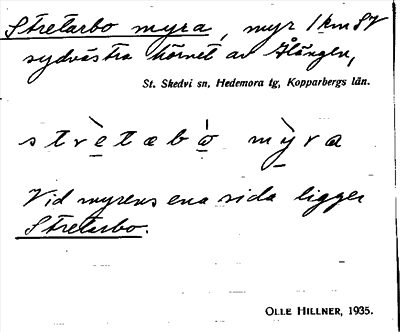 Stretarbo myra, myr 1 km SV
sydvästra hörnet av Hången,
St. Skedvi sn, Hedemora tg, Kopparbergs län.
strètæbò mỳra
Vid myrens ena sida ligger
Stretarbo.
OLLE HILLNER, 1935.